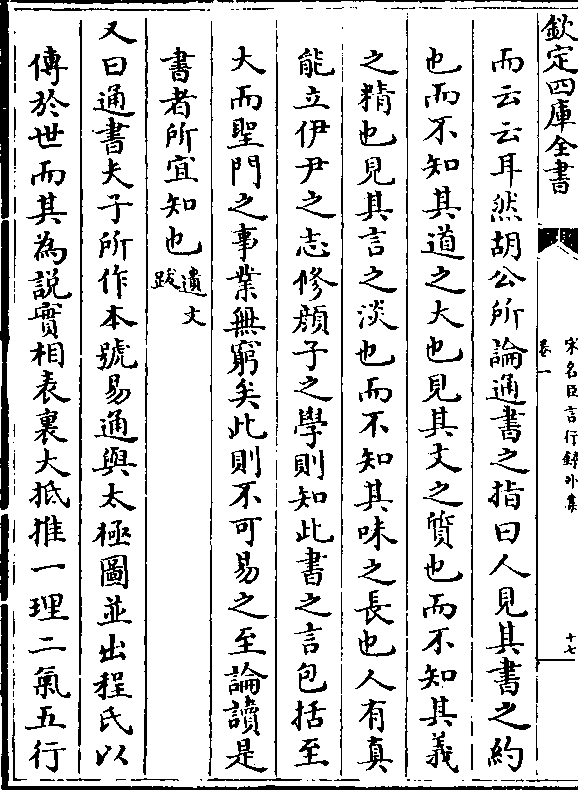 欽定四庫全書
宋名臣言行録外集
卷一
十七
而云云耳然胡公所論通書之指曰人見其書之約
也而不知其道之大也見其文之質也而不知其義
之精也見其言之淡也而不知其味之長也人有真
能立伊尹之志修顔子之學則知此書之言包括至
大而聖門之事業無窮矣此則不可易之至論讀是
書者所宜知也遺文跋
又曰通書夫子所作本號易通與太極圖並出程氏以
傳於世而其為説實相表裏大抵推一理二氣五行